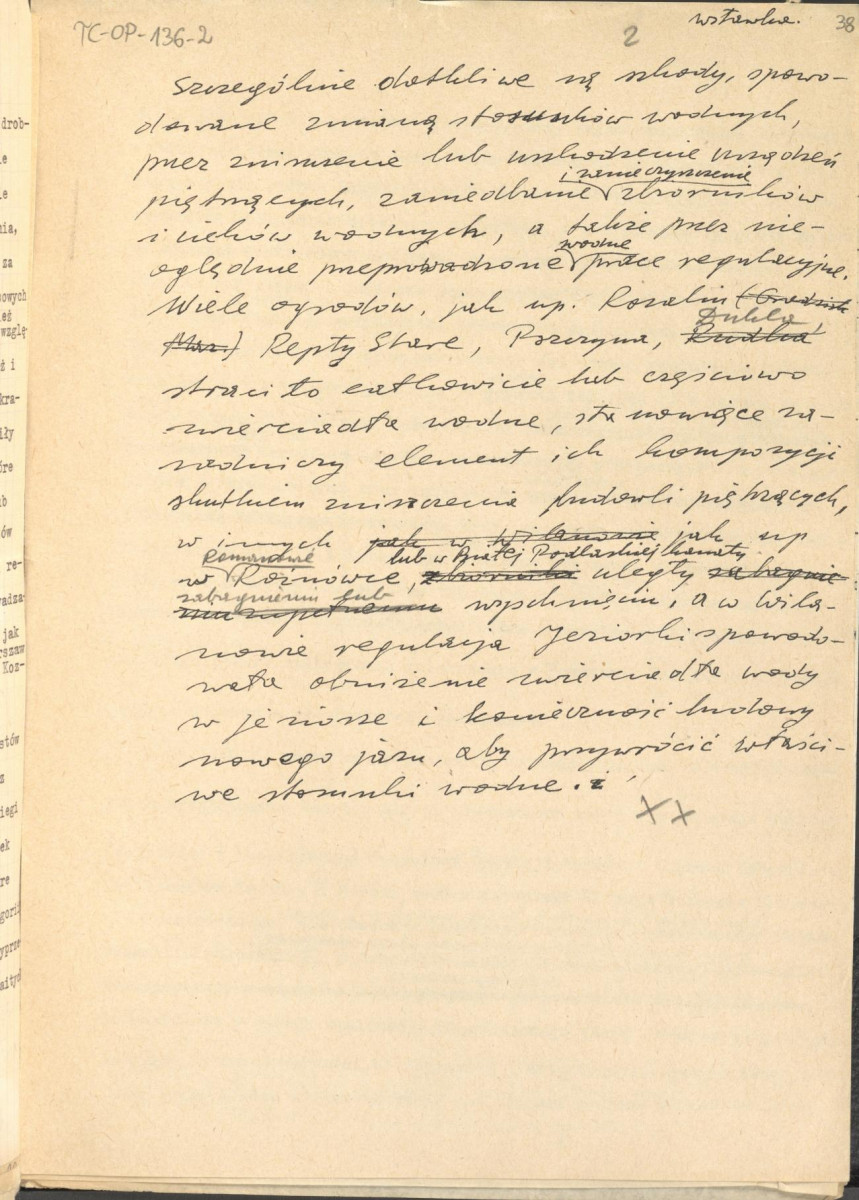 TC-OP-136-2
2
wstawka.
38
Szczególnie dotkliwe są szkody, spowo-
dowane zmianą stosunków wodnych,
przez zniszczenie lub uszkodzenie urządzeń
i zanieczyszczenie
piętrzących, zaniedbanie zbiorników
i cieków wodnych, a także przez nie-
wodne
oględnie przeprowadzone prace regulacyjne.
Wiele ogrodów, jak np. Rozalin (Grodzisk
Dukla
Maz.) Repty Stare, Pszczyna, Rudka
straciło całkowicie lub częściowo
zwierciadła wodne, stanowiące za-
sadniczy element ich kompozycji
skutkiem zniszczenia budowli piętrzących,
w innych jak w Wilanowie jak np
Romanowie lub w Białej Podlaskiej kanały
w Roznówce, zbiorniki uległy zabagnie-
zabagnieniu lub
wyschnięciu, a w Wila-
nowie regulacja Jeziorki spowodo-
wała obniżenie zwierciadła wody
w jeziorze i konieczność budowy
nowego jazu, aby przywrócić właści-
we stosunki wodne.
XX
drob-
nia,
za
sowych
względ
ż i
kra-
iły
óre
ów
re-
adza-
jak
rszaw
Koz-
stów
z
iegi
ek
re
gorii
yprze
aityc